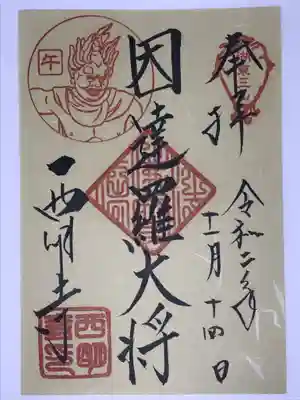 奉拝
令和二年
十一月十四日
因達羅大将
西明寺
午
西明